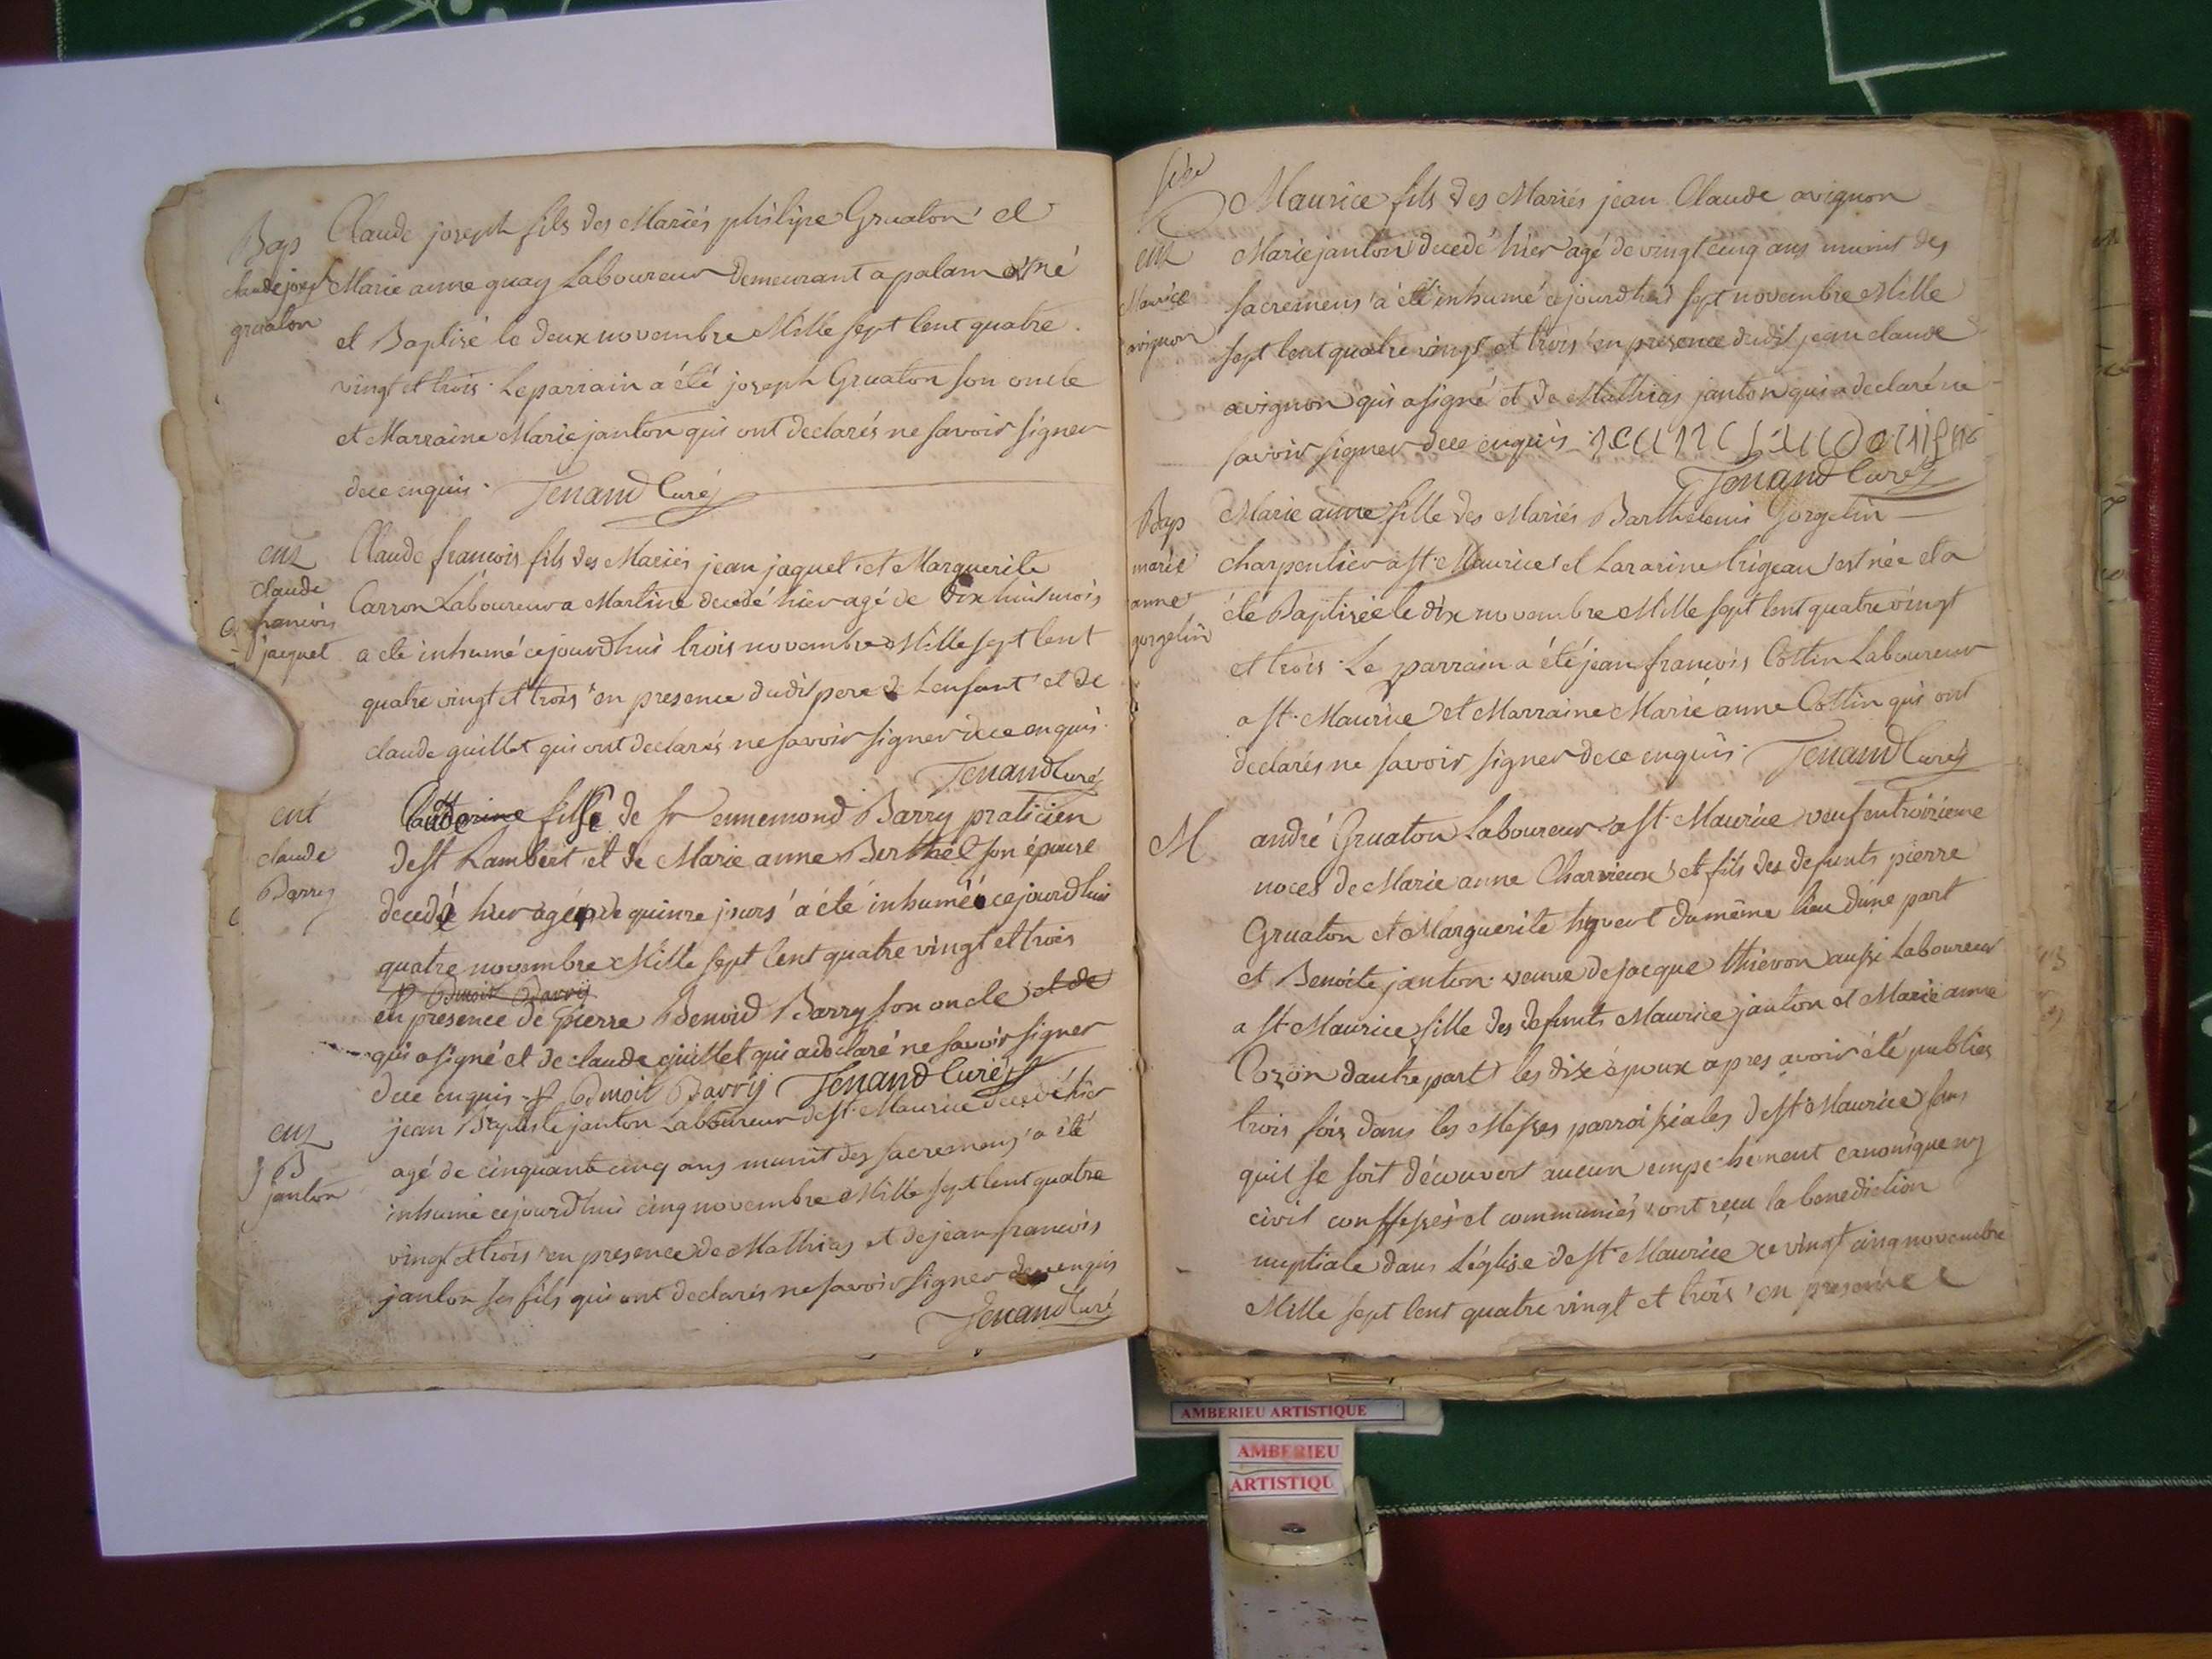 Bap
claude joseph
gruaton
Claude joseph fils des Mariés philipe Gruaton et
Marie anne guay Laboureur demeurant a palam est né
et Baptisé le deux novembre Mille sept Cent quatre
vingt et trois. Le parrain a été joseph Gruaton son oncle
et Marraine Marie janton qui ont declarés ne savoir signer
de ce enquis. Tenand Curé
ent
claude
francois
jaquet
Claude francois fils des Mariés jean jaquet et Marguerite
Carron Laboureur a Martine decedé hier agé de dix huit mois
a été inhumé cejourdhui trois novembre Mille sept Cent
quatre vingt et trois en presence dudit pere de Lenfant et de
claude guillet qui ont declarés ne savoir signer de ce enquis.
Tenand Curé
ent
claude
Barry
Claude fils de sr ennemond Barry praticien
de st Lambert et de Marie anne Berthel son épouse
decedé hier agé de quinze jours a été inhumé cejourdhui
quatre novembre Mille sept Cent quatre vingt et trois
p Benoit Barry
en presence de pierre Benoid Barry son oncle et de
qui a signé et de claude guillet qui a declaré ne savoir signer
de ce enquis. p Benoit Barry Tenand Curé
ent
j B
janton
jean Baptiste janton Laboureur de st Maurice decedé hier
agé de cinquante cinq ans munit des sacremens a été
inhumé cejourdhui cinq novembre Mille sept Cent quatre
vingt et trois en presence de Mathias et de jean francois
janton ses fils qui ont declarés ne savoir signer de ce enquis
Tenand Curé
ent
Maurice
avignon
Maurice fils des Mariés jean Claude avignon
Marie janton decedé hier agé de vingt cinq ans munit des
sacremens a été inhumé cejourdhui sept novembre Mille
sept Cent quatre vingt et trois en presence dudit jean claude
avignon qui a signé et de Mathias janton qui a declaré ne
savoir signer de ce enquis.
Tenand Curé
Bap
marie
anne
gorgelin
Marie anne fille des Mariés Barthelemi Gorgelin
charpentier a st Maurice et Lazarine trigeau est née et a
été Baptisée le dix novembre Mille sept Cent quatre vingt
et trois. Le parrain a été jean francois Cottin Laboureur
a st. Maurice et Marraine Marie anne Cottin qui ont
declarés ne savoir signer de ce enquis. Tenand Curé
M
andré Gruaton Laboureur a st Maurice veuf en troisieme
noces de Marie anne Charvieux et fils des defunts pierre
Gruaton et Marguerite du même lieu dune part
et Benoite janton veuve de jacque thievon aussi Laboureur
a st Maurice fille des defunts Maurice janton et Marie anne
Cozon dautre part les dits époux apres avoir été publies
trois fois dans les Messes parroissiales de st Maurice sans
quil se soit découvert aucun empechement canonique ny
civil confessés et communiés ont reçu la benediction
nuptiale dans Léglise de st Maurice ce vingt cinq novembre
Mille sept Cent quatre vingt et trois en presence
AMBERIEU ARTISTIQUE
AMBERIEU
ARTISTIQU